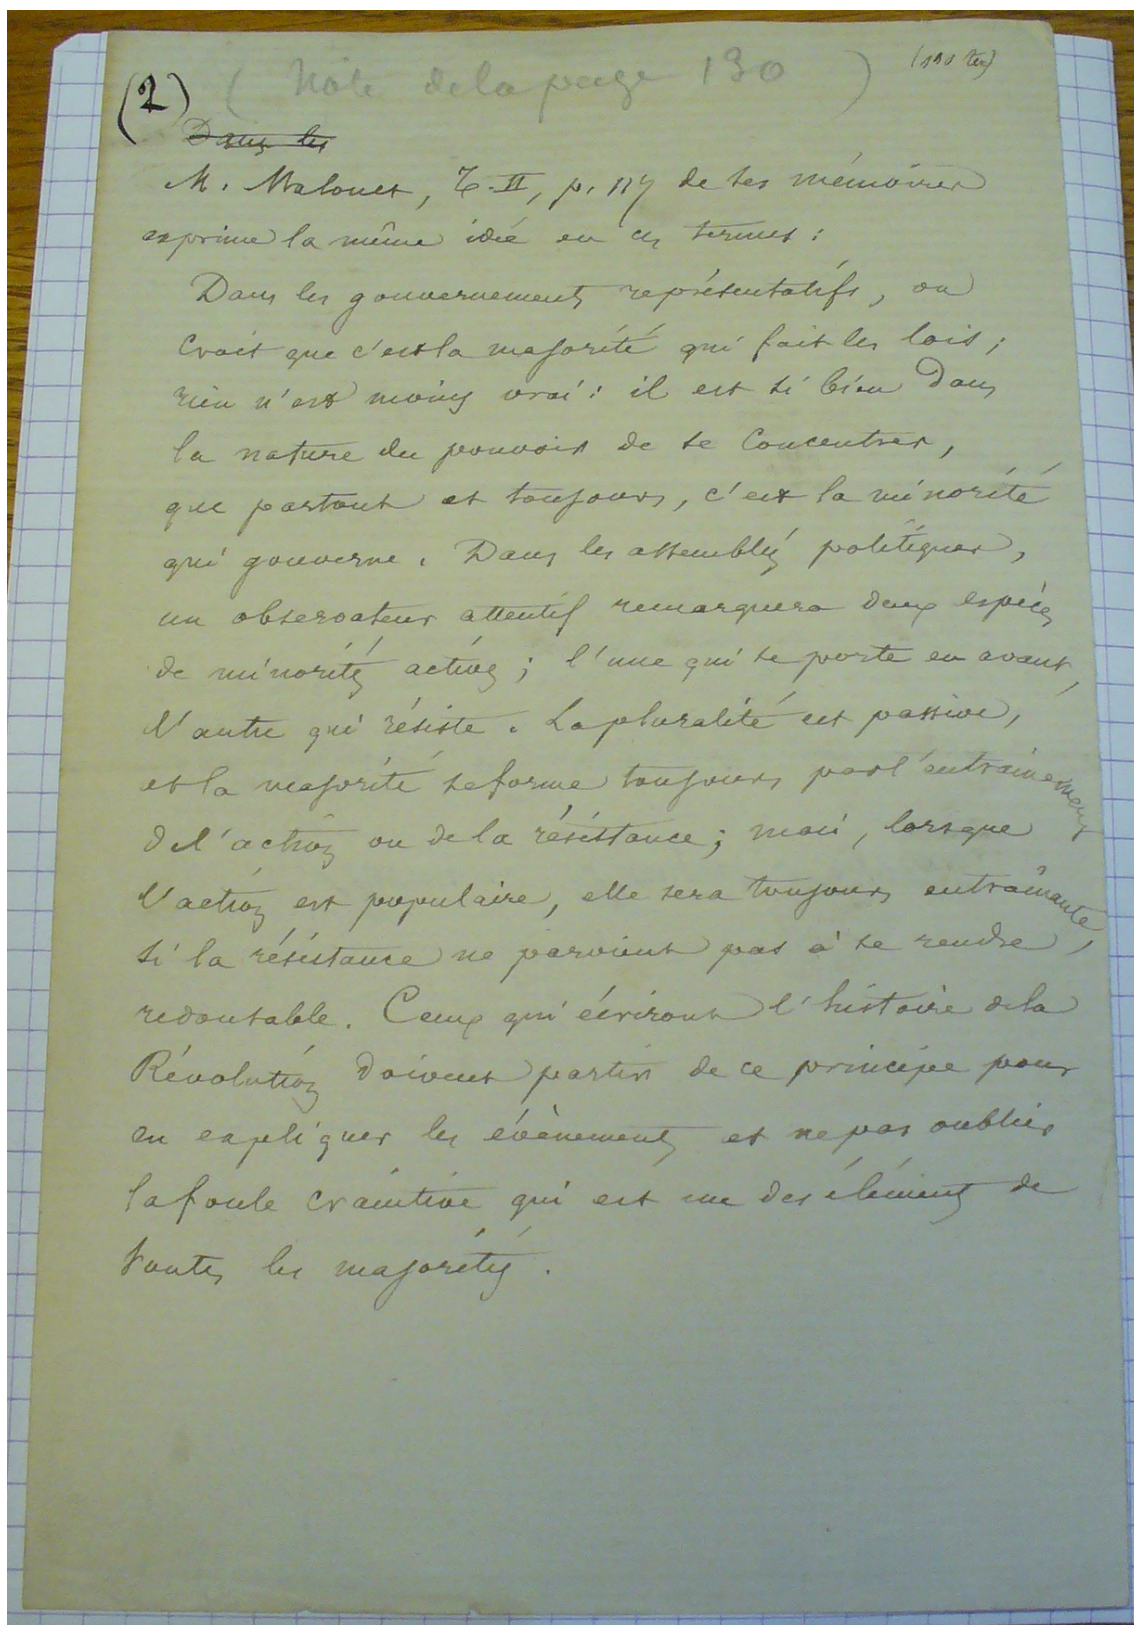 (2) (Note de la page 130) (130 ter)
Dans les
M. Malouet, T. II, p. 117 de ses mémoires
exprime la même idée en ces termes :
Dans les gouvernements représentatifs, on
croit que c'est la majorité qui fait les lois ;
rien n'est moins vrai : il est si bien dans
la nature du pouvoir de se concentrer,
que partout et toujours, c'est la minorité
qui gouverne. Dans les assemblées politiques,
un observateur attentif remarquera deux espèces
de minorités actives ; l'une qui se porte en avant,
l'autre qui résiste. La pluralité est passive,
et la majorité se forme toujours par l'entraînement
de l'action ou de la résistance ; mais, lorsque
l'action est populaire, elle sera toujours entraînante,
si la résistance ne parvient pas à se rendre
redoutable. Ceux qui écriront l'histoire de la
Révolution doivent partir de ce principe pour
en expliquer les évènements et ne pas oublier
la foule craintive qui est un des éléments de
toutes les majorités.